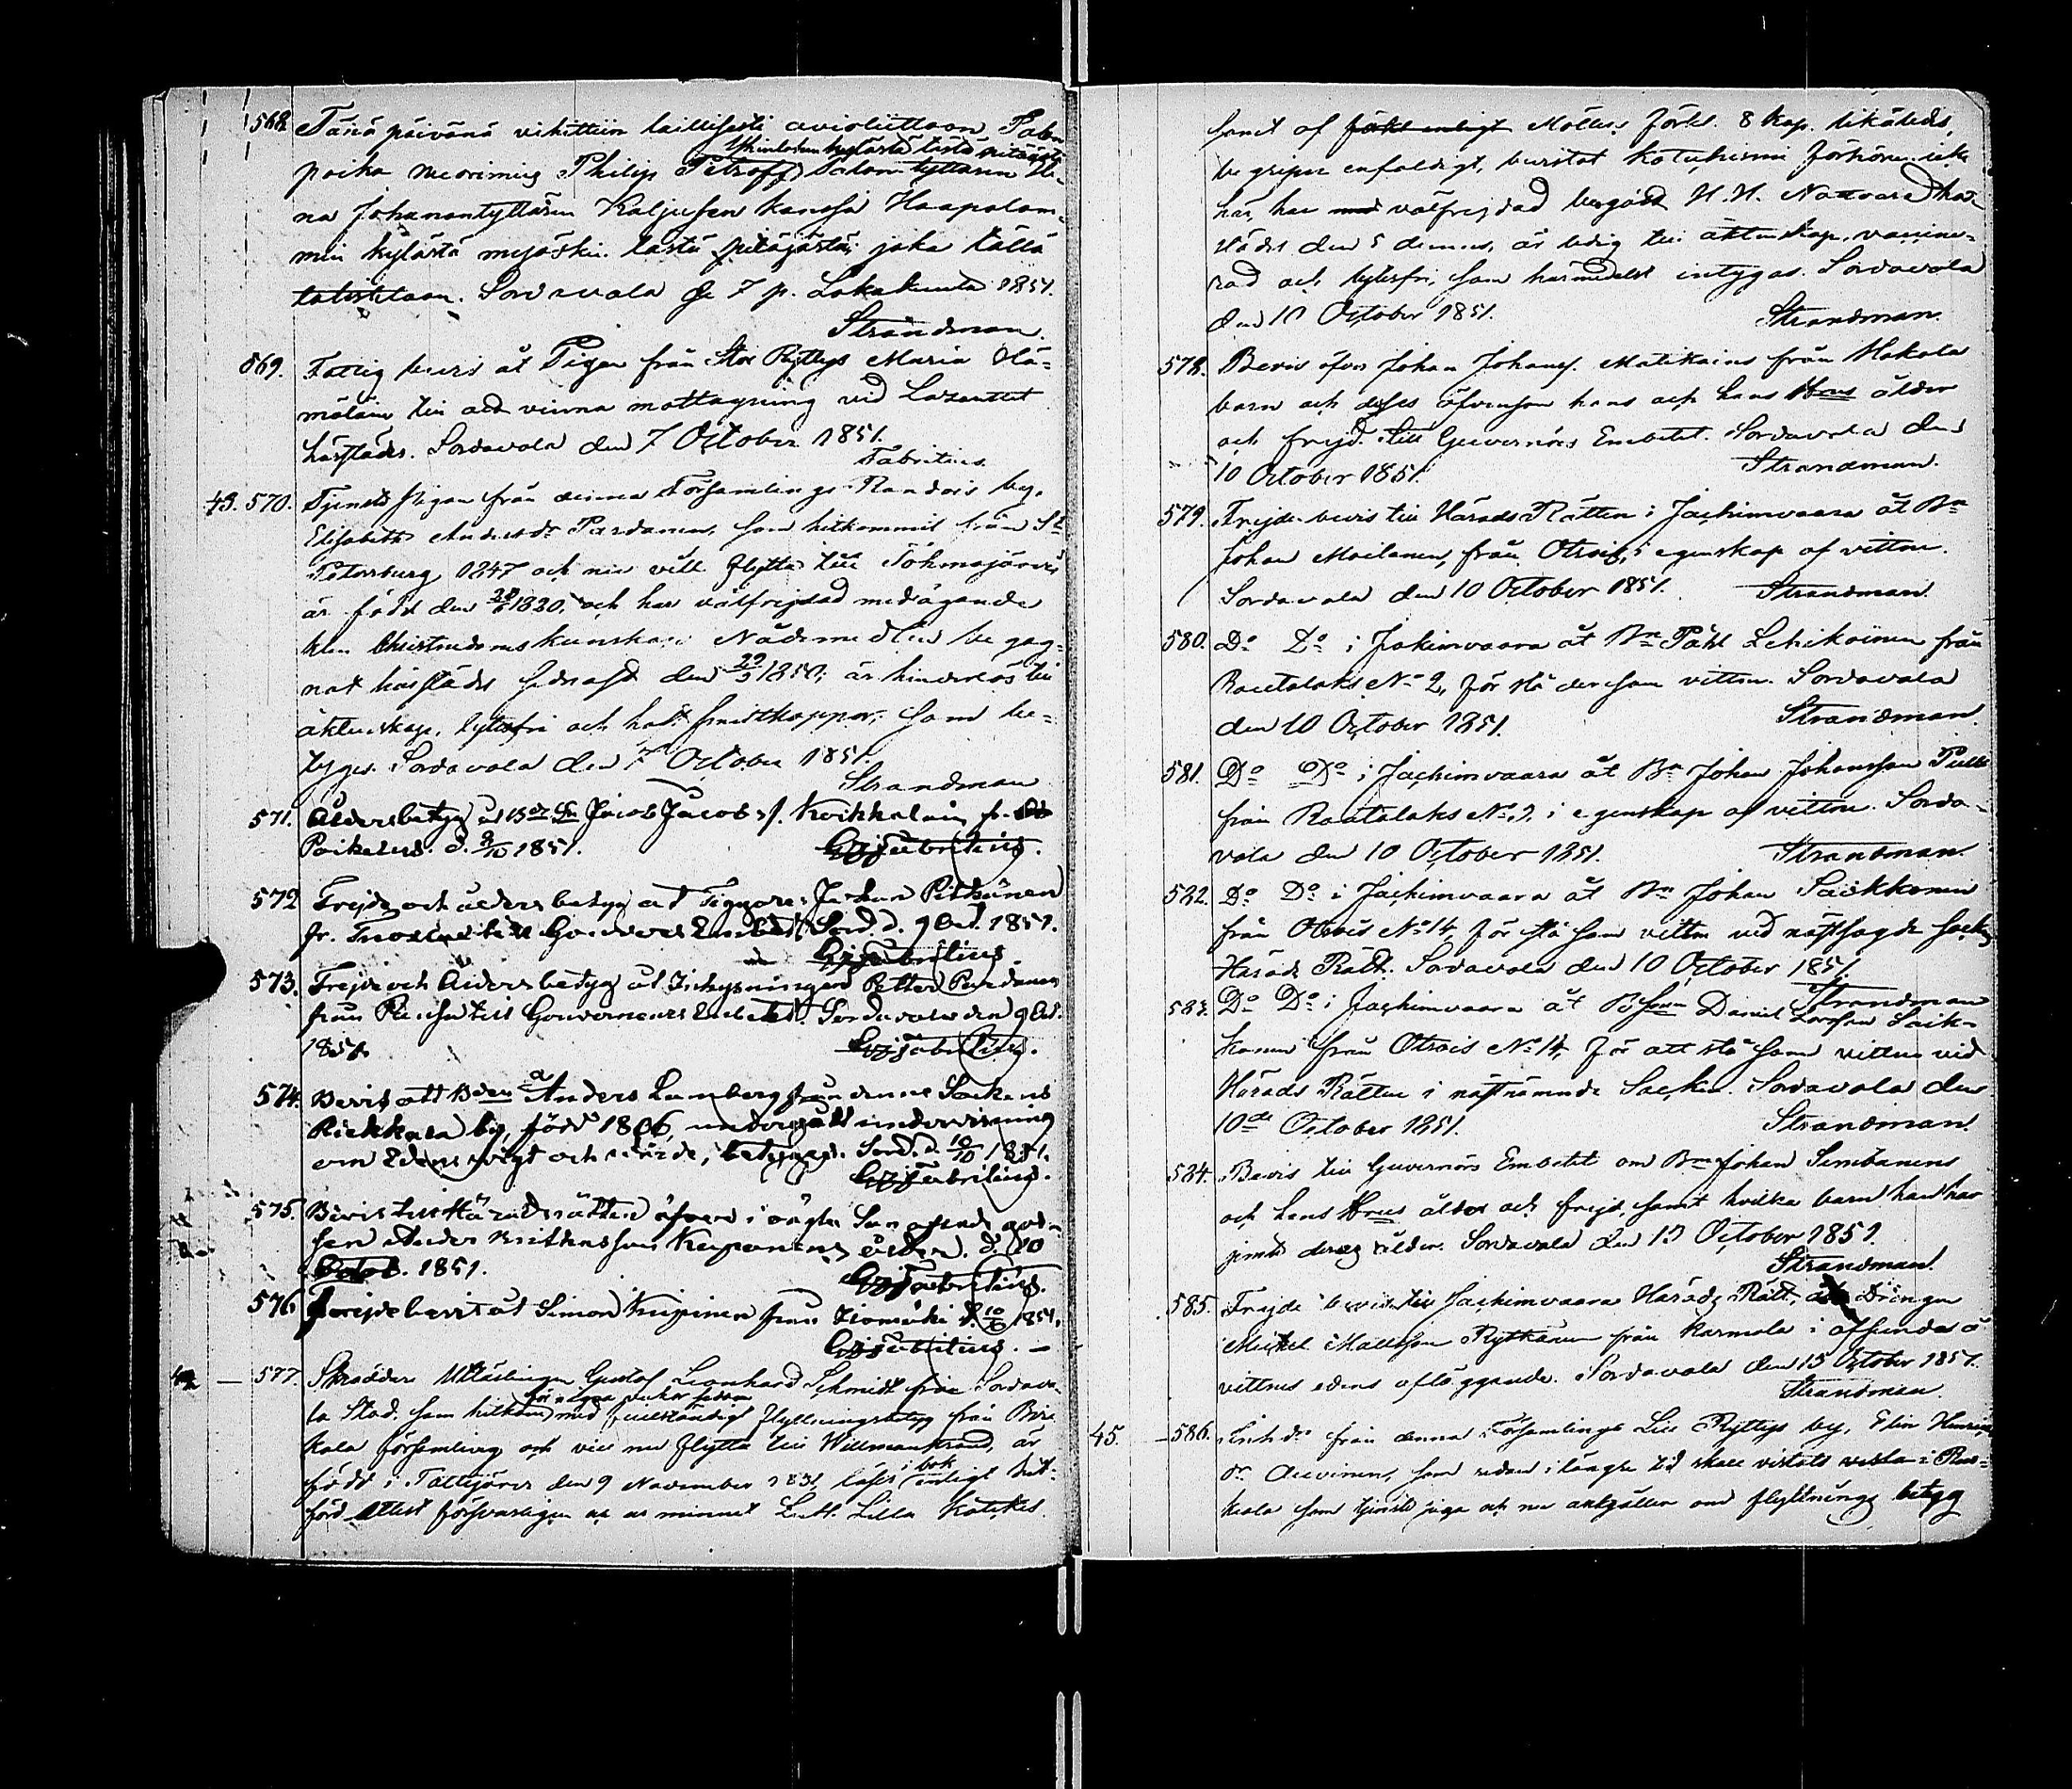 568. Tänä päivänä vihittiin laillisesti avioliittoon Talon
kylästä tästä pitäjästä
poika Philip Petroff Talon tyttären He-
na Johanantyttären Kaljusen kanssa Haapalam-
min kylästä myöskin tästä pitäjästä, joka tällä
todistetaan. Sordavala se 7 p. Lokakuuta 1851.
Strandman.
569. Fattig bevis åt Pigan från Stor Ryttys Maria Hä-
mäläin till att vinna mottagning vid Lazarettet
härstädes. Sordavala den 7 October 1851.
Fabritius.
43. 570. Tjenste pigan från denna Församlings Randois by,
Elisabeth Andersdr Pardanen, som hitkommit från St
Petersburg 1847 och nu vill flytta till Tohmajärvi
är född den 1820, och har välfrejdad medägande
Christendoms kunskap, Nådemedlen begag-
nat härstädes sednast den 29/9 1850; är hinderlös till
äktenskap, lytesfri och haft smittkoppor, som be-
tygas. Sordavala den 7 October 1851.
Strandman
571. Åldersbetyg åt Jacob Jacobs s. Koikkalain fr.
d. 9/10 1851.
Fabritius.
572. Frejde och åldersbetyg åt Johan Pitkänen
fr. till Gouverns Embetet. Sord. d. 9 Oct. 1851.
Fabritius.
573. Frejde och åldersbetyg åt Inhysningen Petter Pardanen
från till Gouverneurs Embetet. Sordavala den 9 Oct.
1851.
Fabritius.
574. Bevis att Anders Lamberg från denna Sockens
Riekkala by, född 1806, undergått undervisning
om Edens vigt och värde, betygas. Sord. d. 10/10 1851.
Fabritius.
575. Bevis till Häradsrätten öfver
Anders Kuponens ålder. d. 10
Octob. 1851.
Fabritius.
576. Frejdebevis åt Simon från d. 10/10 1851.
Fabritius. —
44 — 577. Skräddare Utlärlingen Gustaf Leonhard Schmidt från Sordava-
för några veckor sedan
la Stad, som hitkom med fullständigt flyttningsbetyg från
kala församling och vill nu flytta till Willmanstrand, är
i bok
född i den 9 November 1831, läser enligt hit-
förd Attest försvarligen ur minnet Luth. Lilla Katekes.
samt af Möllers förkl. 8 kap. likaledes,
begriper enfaldigt, bevistat Katechismi förhören icke
här, har med välfrejdad begådt H. H. Nattvard här-
städes den 5 dennes, är ledig till äktenskap, vaccine-
rad och lytesfri, som härmedelst intygas. Sordavala
den 10 October 1851. Strandman.
578. Bevis öfver Johan Johans s. Matikains från Hakala
barn och deras äfvensom hans och hans Hus ålder
och frejd till Guvernörs Embetet. Sordavala den
10 October 1851. Strandman.
579. Frejde-bevis till Härads Rätten i Jackimvaara åt Bn
Johan Moilanen, från Otrois, i egenskap af vittne.
Sordavala den 10 October 1851. Strandman.
580. Do Do i Jakimvaara åt Bn Påhl Lehikoinen från
Rautalaks No 2, för stå dersom vittne. Sordavala
den 10 October 1851. Strandman.
581. Do Do i Jackimvaara åt Bn Johan Johansson
från Rautalaks No 2, i egenskap af vittne. Sorda-
vala den 10 October 1851. Strandman.
582. Do Do i Jackimvaara åt Bn Johan Saikkonen
från Otrois No 14, för stå som vittne vid nästsagde Sockns
Härads Rätt. Sordavala den 10 October 1851.
Strandman
583. Do Do i Jackimvaara åt BSon Daniel Larsson Saik-
konen från Otrois No 14, för att stå som vittne vid
Härads Rätten i nästnämnde Socken. Sordavala den
10de October 1851. Strandman.
584. Bevis till Guvernörs Embetet om Bn Johan Simbanens
och hans Hus ålder och frejd, samt hvilka barn han har
jemte deras ålder. Sordavala den 13 October 1851.
Strandman.
585. Frejde bevis till Jackimvaara Härads Rätt, åt Drängen
Michel Mattsson Rytkönen från Karmala i afseende å
vittnes edens afläggande. Sordavala den 13 October 1851.
Strandman.
45. — 586. från denna Församlings Lill Ryttys by, Elin Henriks
dr som redan i längre tid skall vistats i Rus-
keala som tjenste piga och nu anhåller om flyttnings betyg